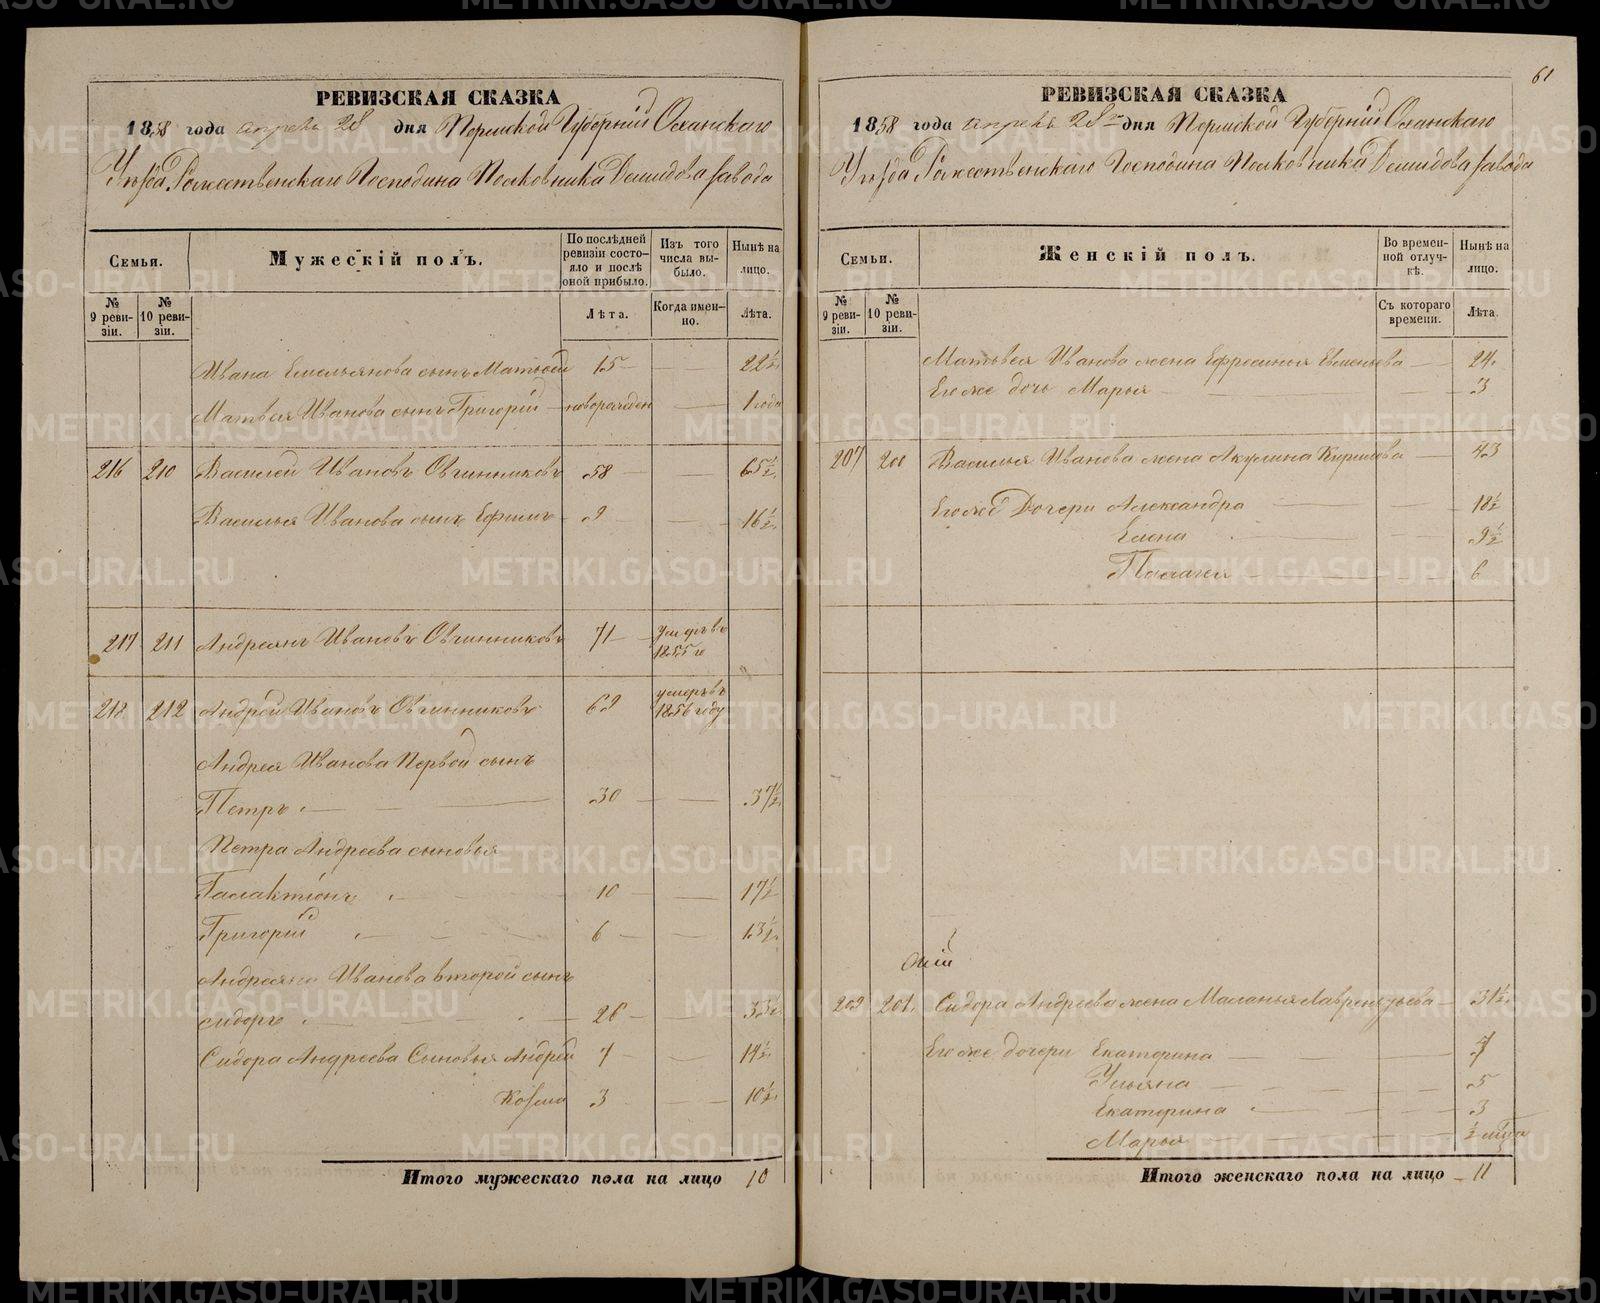 РЕВИЗСКАЯ СКАЗКА
1858 года апреля 28 дня Пермской Губернии Оханскаго
Уезда Рожественскаго Господина Полковника Демидова завода
Семьи.
Мужескій полъ.
По послѣдней ревизіи состояло и послѣ оной прибыло.
Изъ того числа выбыло.
Нынѣ на лицо.
№ 9 ревизіи.
№ 10 ревизіи.
Лѣта.
Когда именно.
Лѣта.
Ивана Емельянова сынъ Матвей 15 — — 22½
Матвея Ивановa сынъ Григорій — новорожден — 1 года
216 210 Василей Ивановъ Овчинниковъ 58 — — 65½
Василья Иванова сынъ Ефимъ 9 — — 16½
217 211 Андреянъ Ивановъ Овчинниковъ 71 — умеръ въ 1855 го
218 212 Андрей Ивановъ Овчинниковъ 69 умеръ въ 1856 году
Андрея Иванова Первой сынъ
Петръ — — 30 — — 37½
Петра Андреева сыновья
Галактіонъ — 10 — — 17½
Григорій — — 6 — — 13½
Иванова второй сынъ
Сидоръ — — 26 — — 33½
Сидора Андреева Сыновья Андрей 7 — — 14½
Козма 3 — — 10½
Итого мужескаго пола на лицо 10
61
РЕВИЗСКАЯ СКАЗКА
1858 года апреля 28го дня Пермской Губернии Оханскаго
Уезда Рожественскаго Господина Полковника Демидова завода
Семьи.
Женскій полъ.
Во временной отлучкѣ.
Нынѣ на лицо.
№ 9 ревизіи.
№ 10 ревизіи.
Съ котораго времени.
Лѣта.
Матвея Иванова жена — 24
Его же дочь Марья — — 3
Василья Иванова жена Акулина Кирилова — 43
Его же Дочери Александра — — 18½
Елена — — 9½
Палагея — — 6
Сидора Андреева жена Маланья Лаврентьева — 31½
Его же дочери Екатерина — — 7
Ульяна — — 5
Екатерина — — 3
Марья — — ½
Итого женскаго пола на лицо — 11
METRIKI.GASO-URAL.RU